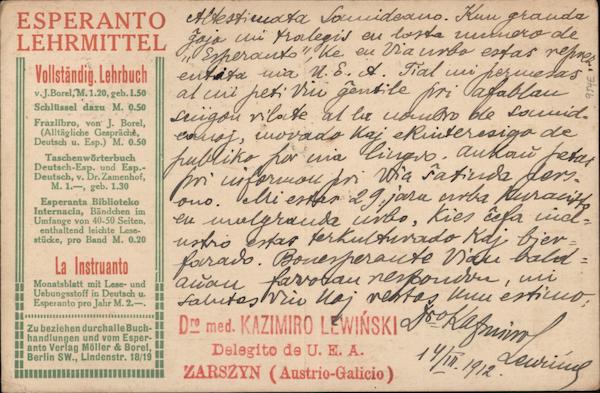 ESPERANTO
LEHRMITTEL
Vollständig. Lehrbuch
v. J. Borel, M. 1.20, geb. 1.50
Schlüssel dazu M. 0.50
Frazlibro, von J. Borel,
(Alltägliche Gespräche,
Deutsch u. Esp.) M. 0.50
Taschenwörterbuch
Deutsch-Esp. und Esp.-
Deutsch, v. Dr. Zamenhof,
M. 1.—, geb. 1.30
Esperanta Biblioteko
Internacia, Bändchen im
Umfange von 40-50 Seiten,
enthaltend leichte Lese-
stücke, pro Band M. 0.20
La Instruanto
Monatsblatt mit Lese- und
Uebungsstoff in Deutsch u.
Esperanto pro Jahr M. 2.—.
Zu beziehen durch alle Buch-
handlungen und vom Esper-
anto Verlag Möller & Borel,
Berlin SW., Lindenstr. 18/19
Altestimata Samideano. Kun granda
ĝojo mi tralegis en lasta numero de
"Esperanto" ke en Via urbo estas repre-
zentata nia U. E. A. Tial mi permesas
al mi peti Vin gentile pri afablan
sciigon rilate al la nombro de samid-
eanoj, movado kaj ekinteresigo de
publiko por nia lingvo, ankaŭ petas
pri informon pri Via ŝatinda per-
sono. Mi estas 29 jara urba kuracisto
en malgranda urbo, kies ĉefa ind-
ustrio estas terkulturado kaj bier-
farado. Bonesperante Vian bald-
aŭan favoran respondon, mi
salutas Vin kaj restas kun estimo.
Dro Kazimiro
Lewiński
14/III. 1912.
Dro med. KAZIMIRO LEWIŃSKI
Delegito de U. E. A.
ZARSZYN (Austrio-Galicio)